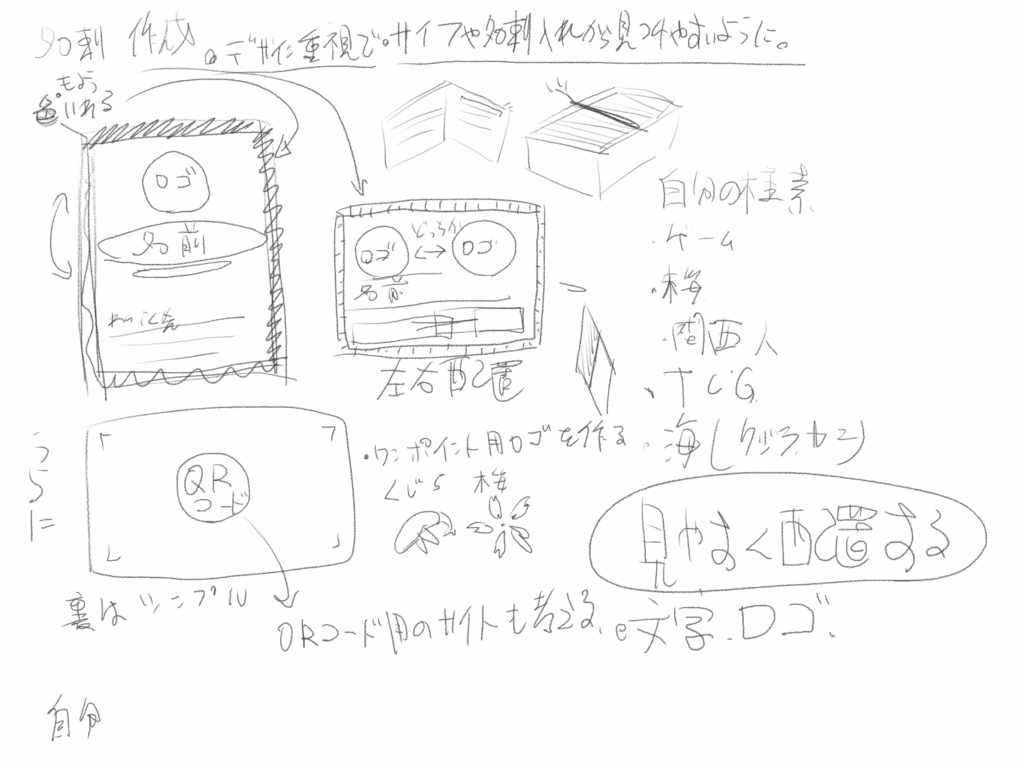 名刺 作成
デザイン重視で。サイフや名刺入れから見つけやすいように。
もよう
いれる
ロゴ
名前
どっちか
ロゴ ←→ ロゴ
名前
左右配置
自分の様素
・ゲーム
・梅
・関西人
・TCG
・海(クジラ カニ)
うらに
QR
コード
裏は シンプル
・ワンポイント用ロゴを作る
くじら 梅
見やすく配置する
QRコード用のサイトも考える。
文字、ロゴ、
自分